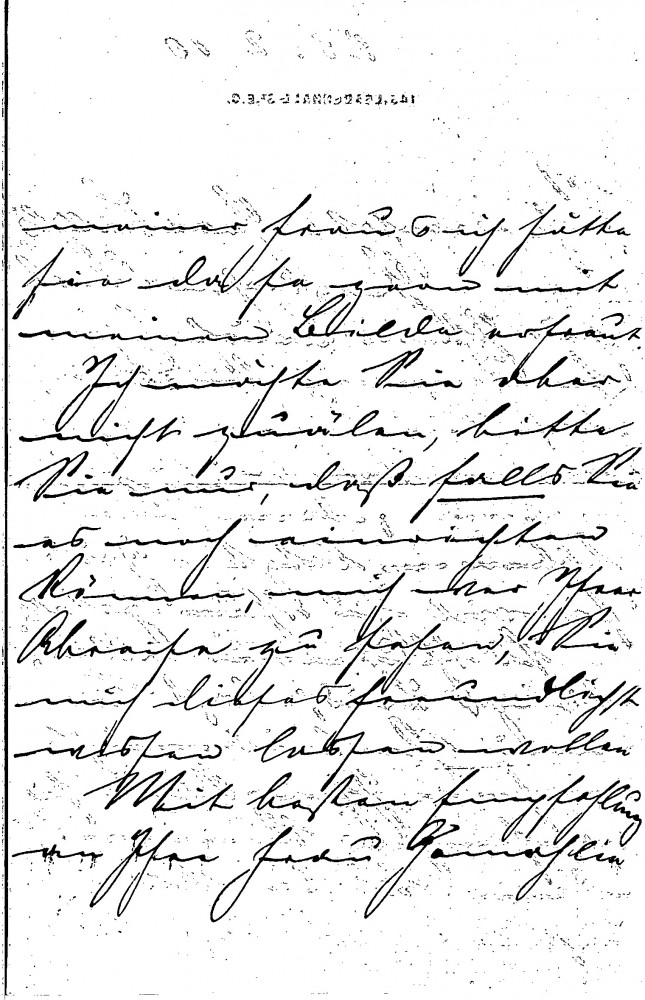 meiner Frau & ich hätte
sie da so gern mit
meinem Bilde erfreut.
Ich möchte Sie aber
nicht quälen, bitte
Sie nur, daß falls Sie
es noch einrichten
können, mich vor Ihrer
Abreise zu sehen, Sie
mich dieses freundlichst
wissen lassen wollen
Mit besten Empfehlung
an Ihre Frau Gemahlin